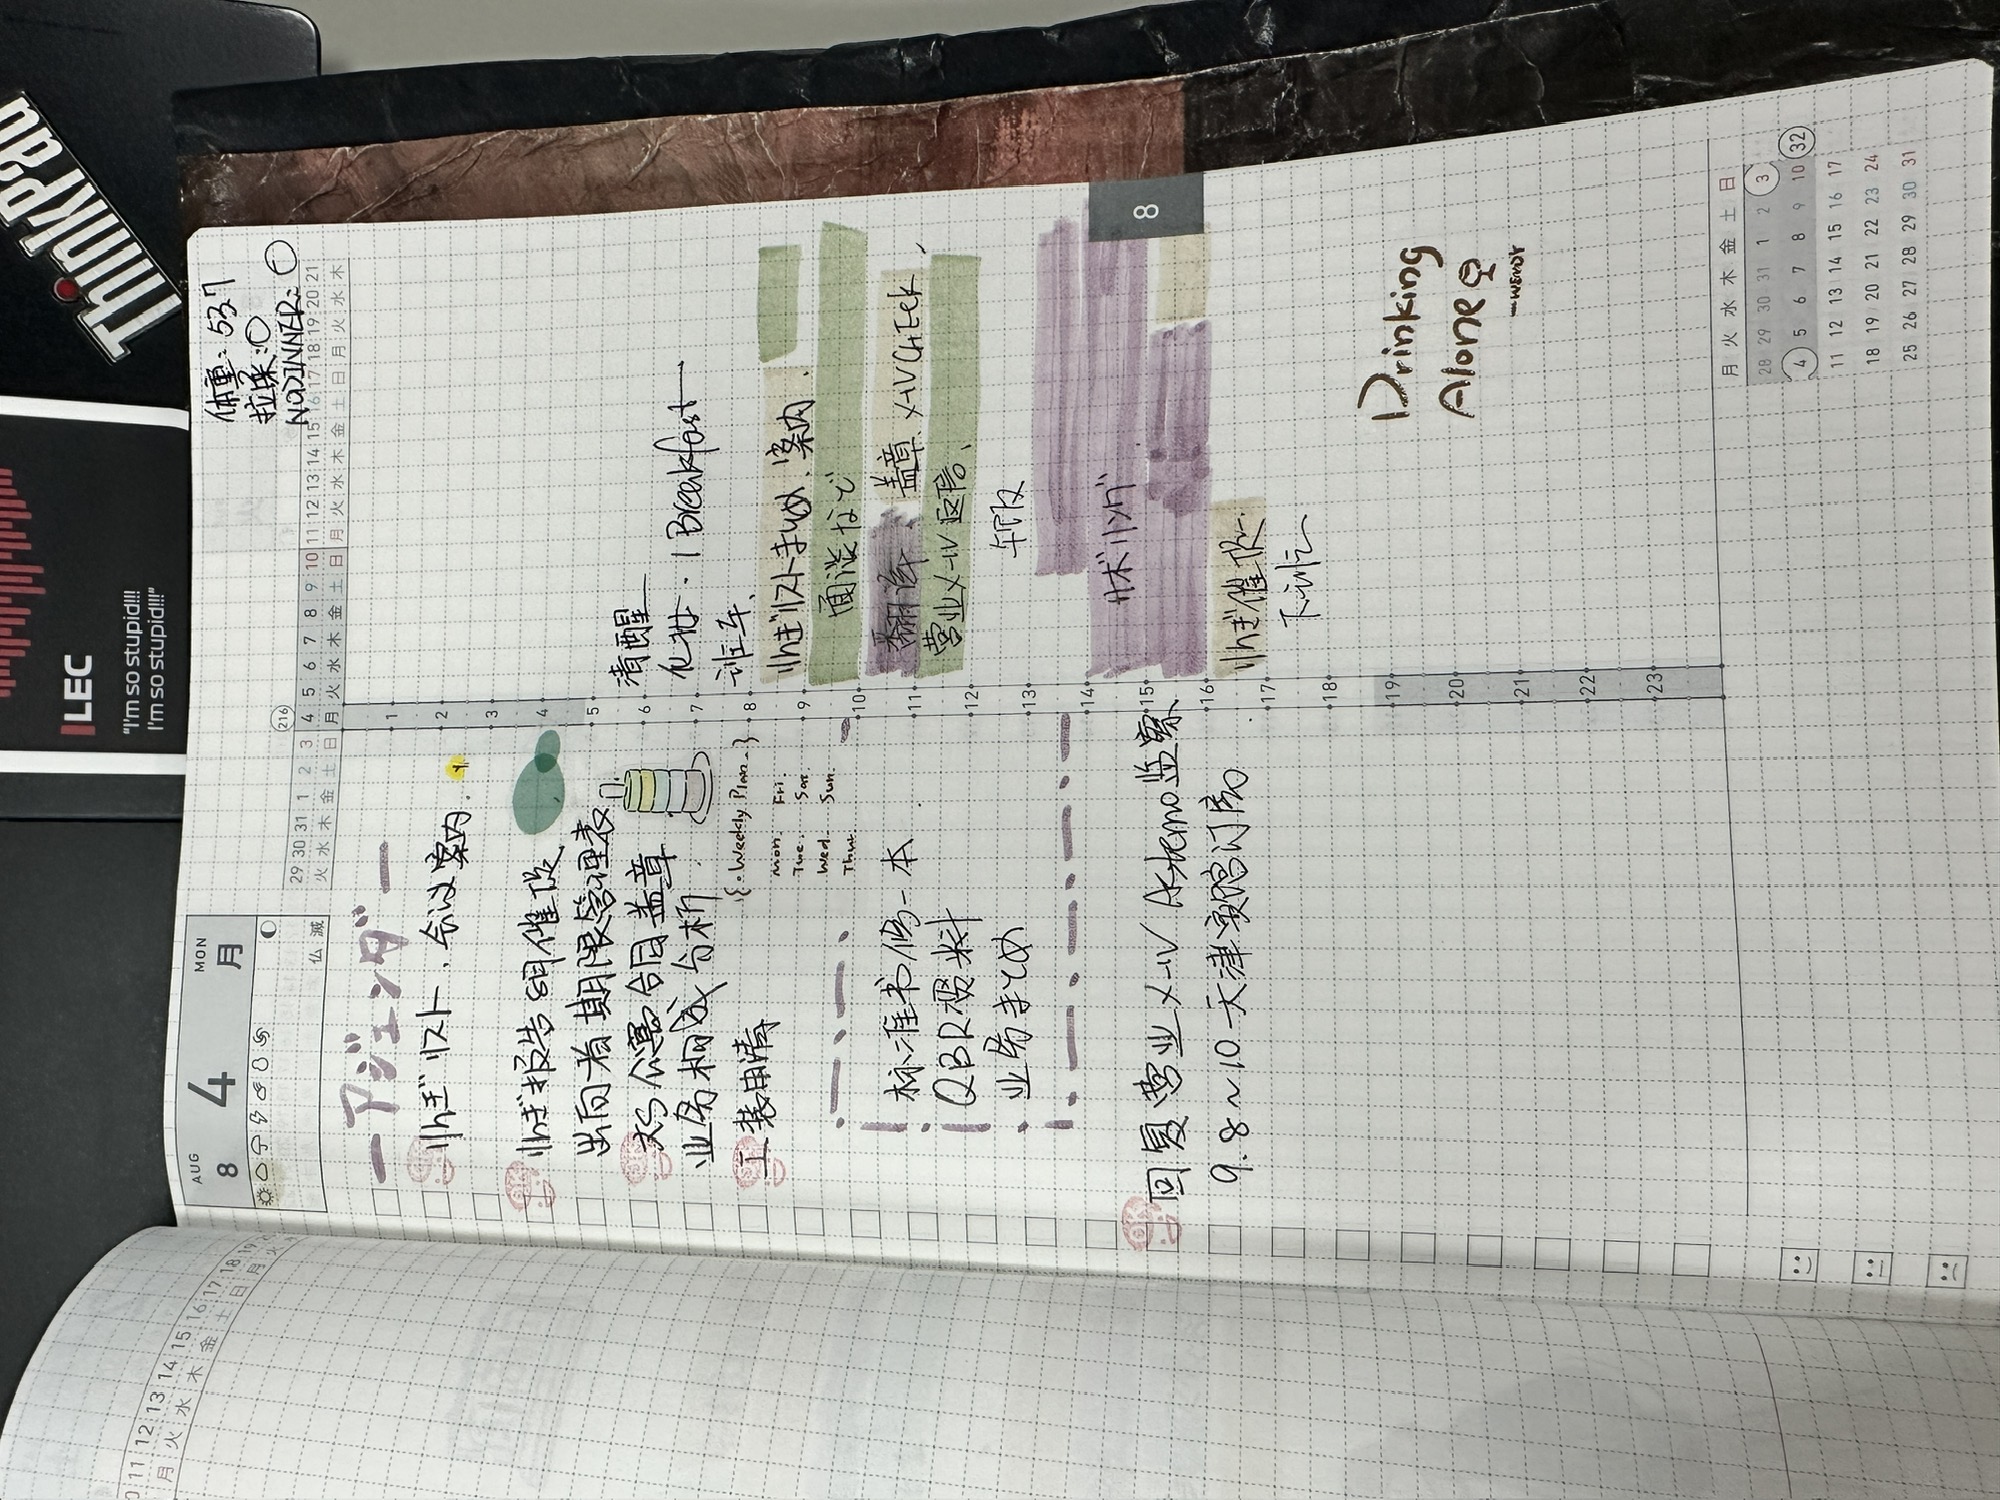 ThinkPad
LEC
"I'm so stupid!!!
I'm so stupid!!!"
体重: 52.7
拉尿: ○
NO DINNER: ○
AUG
8
4
MON
月
仏滅
216
29 30 31 1 2 3 4 5 6 7 8 9 10 11 12 13 14 15 16 17 18 19 20 21
火 水 木 金 土 日 月 火 水 木 金 土 日 月 火 水 木 金 土 日 月 火 水 木
ーアジェンダー
りんぎリスト. 会议案内.
りんぎ报告 8月催促
出向者期限管理表
合同盖章
业务相成分析
工装申请
{・Weekly Plan・}
Mon. Fri.
Tue. Sat.
Wed. Sun.
Thur.
标准书修一本
QBR资料
业务まとめ
回复营业メール Astemo监察
9.8～10 天津 订房
1
2
3
4
5
6
7
8
9
10
11
12
13
14
15
16
17
18
19
20
21
22
23
清醒
化妆. Breakfast
班车.
りんぎリストまとめ、案内.
面谈など
翻译 盖章. メールCHECK.
营业メール 回信.
午饭
サボリング
りんぎ催促.
下班
8
Drinking
Alone
月 火 水 木 金 土 日
28 29 30 31 1 2 3
4 5 6 7 8 9 10 32
11 12 13 14 15 16 17
18 19 20 21 22 23 24
25 26 27 28 29 30 31
10 11 12 13 14 15 16 17 18 19
月 火 水 木 金 土 日 月 火